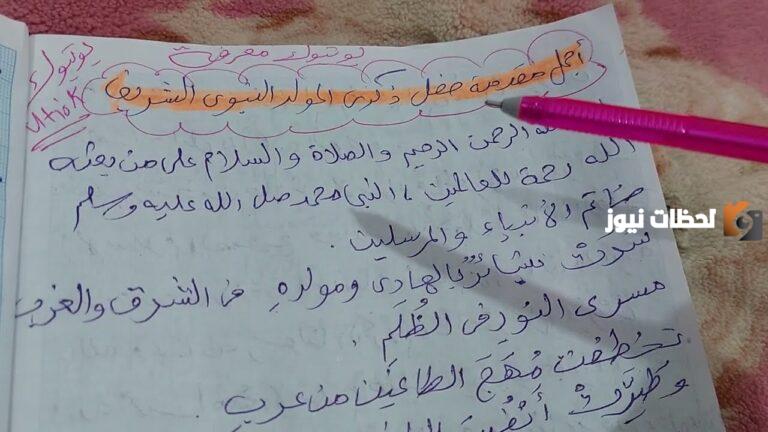 يوتيوك معرفة
يوتيوك
Utiok
أجمل مقدمة حفل ذكرى المولد النبوى الشريف
الله الرحمن الرحيم والصلاة والسلام على من بعثه
الله رحمة للعالمين ، النبى محمد صل الله عليه وسلم
خاتم الأنبياء والمرسلين .
سرت بشائرُ بالهادى ومولدهِ فى الشرق والغرب
مسرى النور فى الظُلَمِ .
تخطفت مُهَجَ الطاغين من عربٍ
وطيرت أنفُسَ
لحظات نيوز